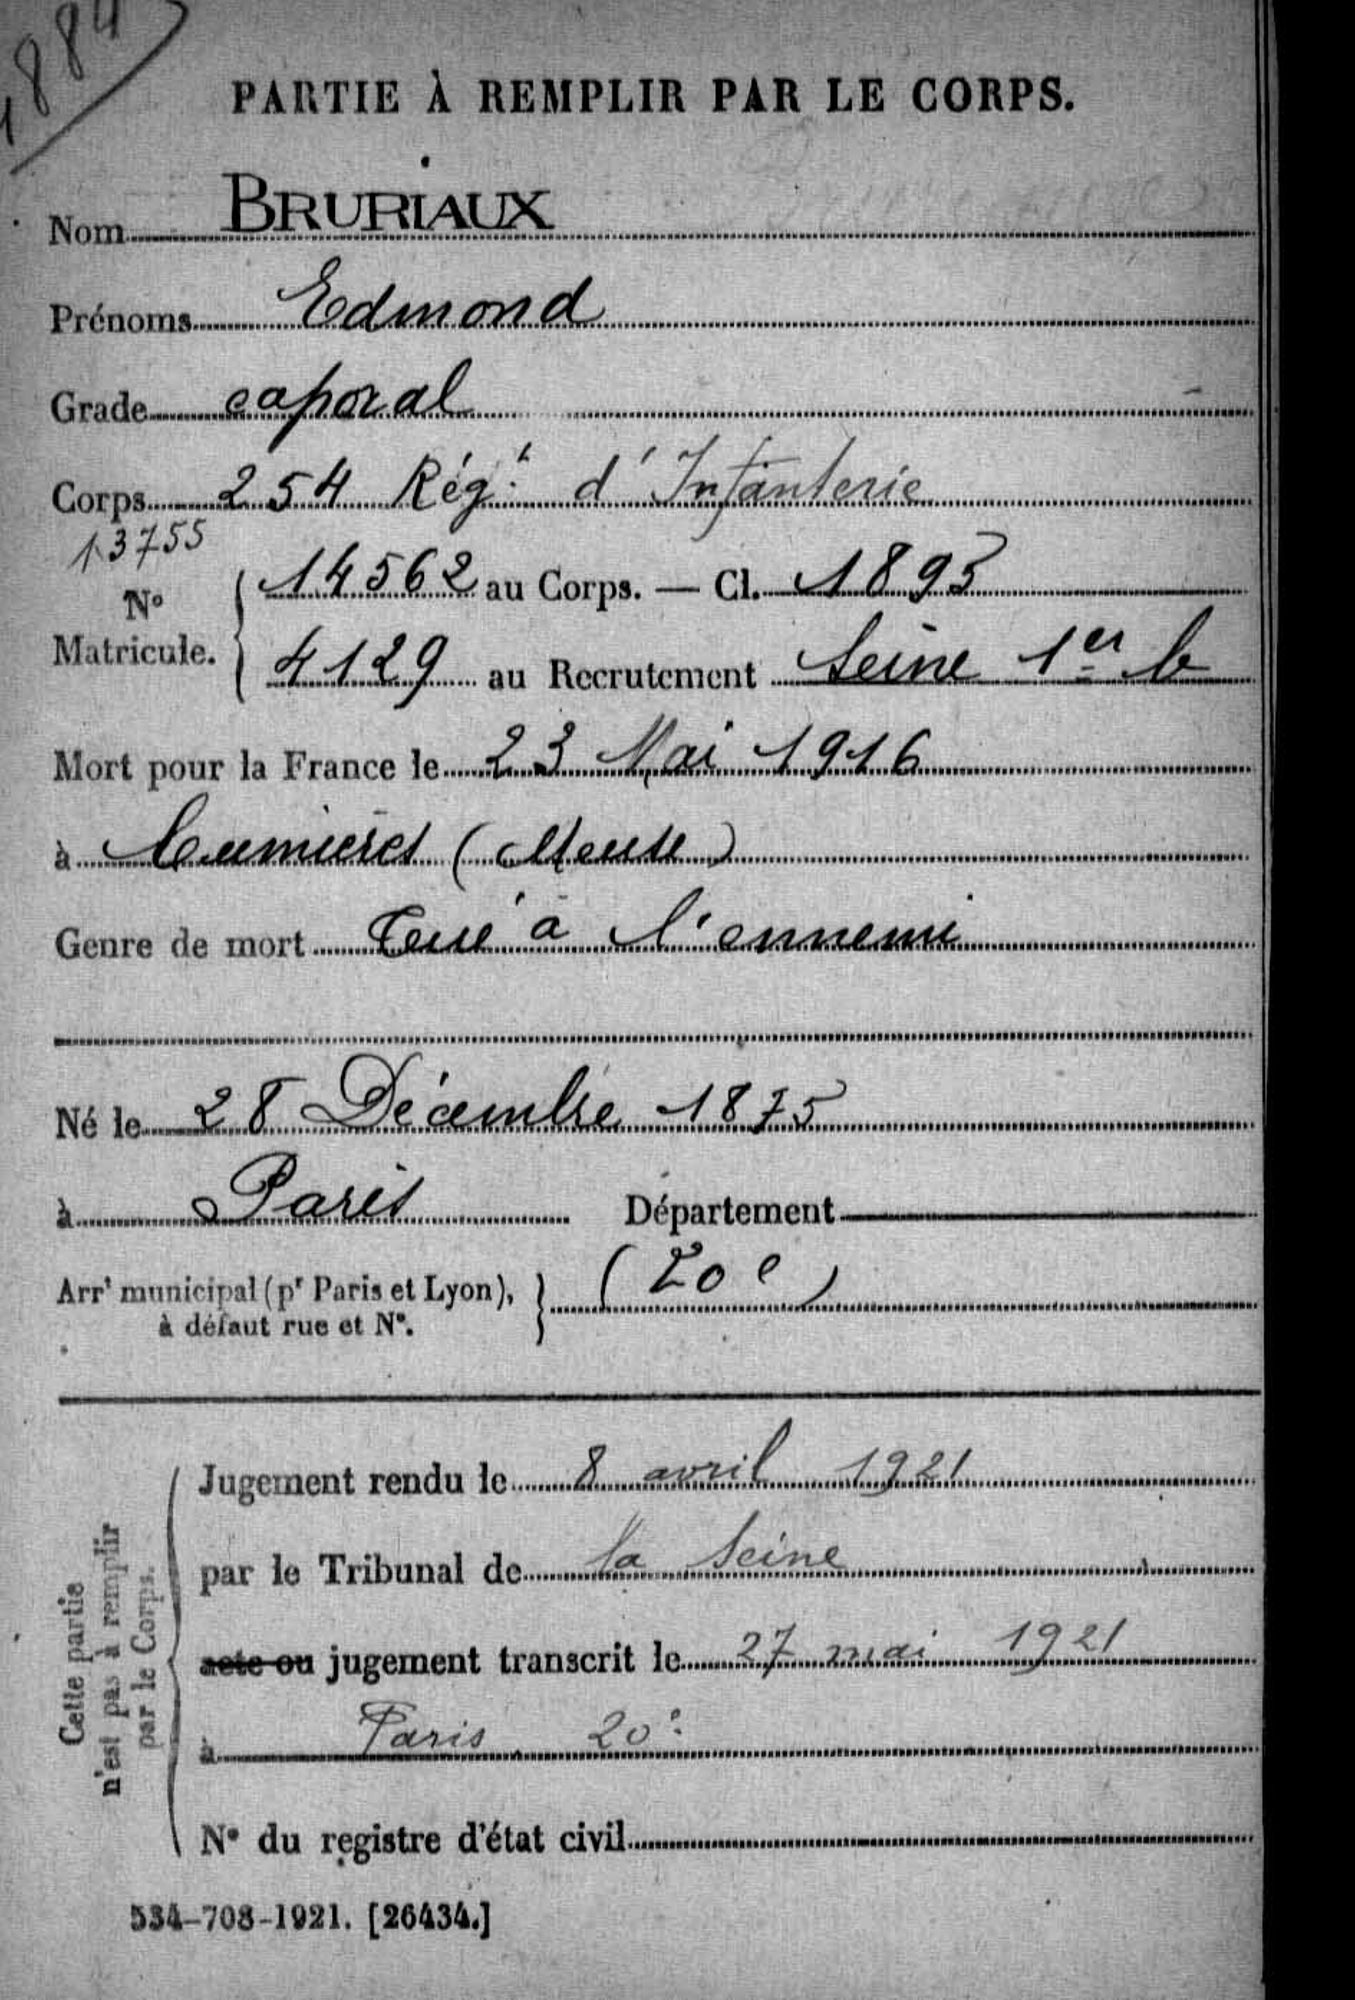 1884
PARTIE À REMPLIR PAR LE CORPS.
Nom BRURIAUX
Prénoms Edmond
Grade caporal
Corps 254 Régt d'Infanterie
13755
No Matricule. 14562 au Corps. — Cl. 1895
4129 au Recrutement Seine 1er b
Mort pour la France le 23 Mai 1916
à Cumières (Meuse)
Genre de mort Tué à l'ennemi
Né le 28 Décembre 1875
à Paris Département
Arrt municipal (pr Paris et Lyon), (20e)
à défaut rue et No.
Cette partie n'est pas à remplir par le Corps.
Jugement rendu le 8 avril 1921
par le Tribunal de la Seine
acte ou jugement transcrit le 27 mai 1921
à Paris 20e
No du registre d'état civil
534-708-1921. [26434.]